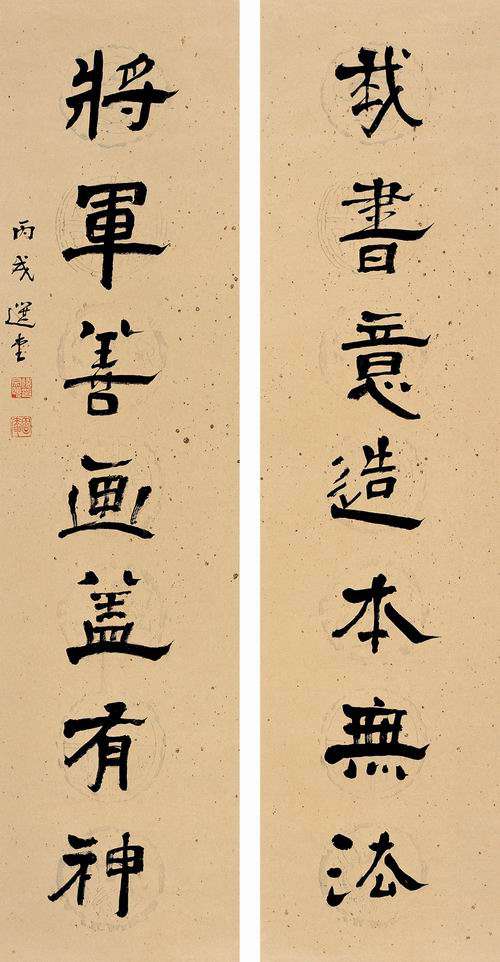 我書意造本無法
將軍善畫蓋有神
丙戌 選堂